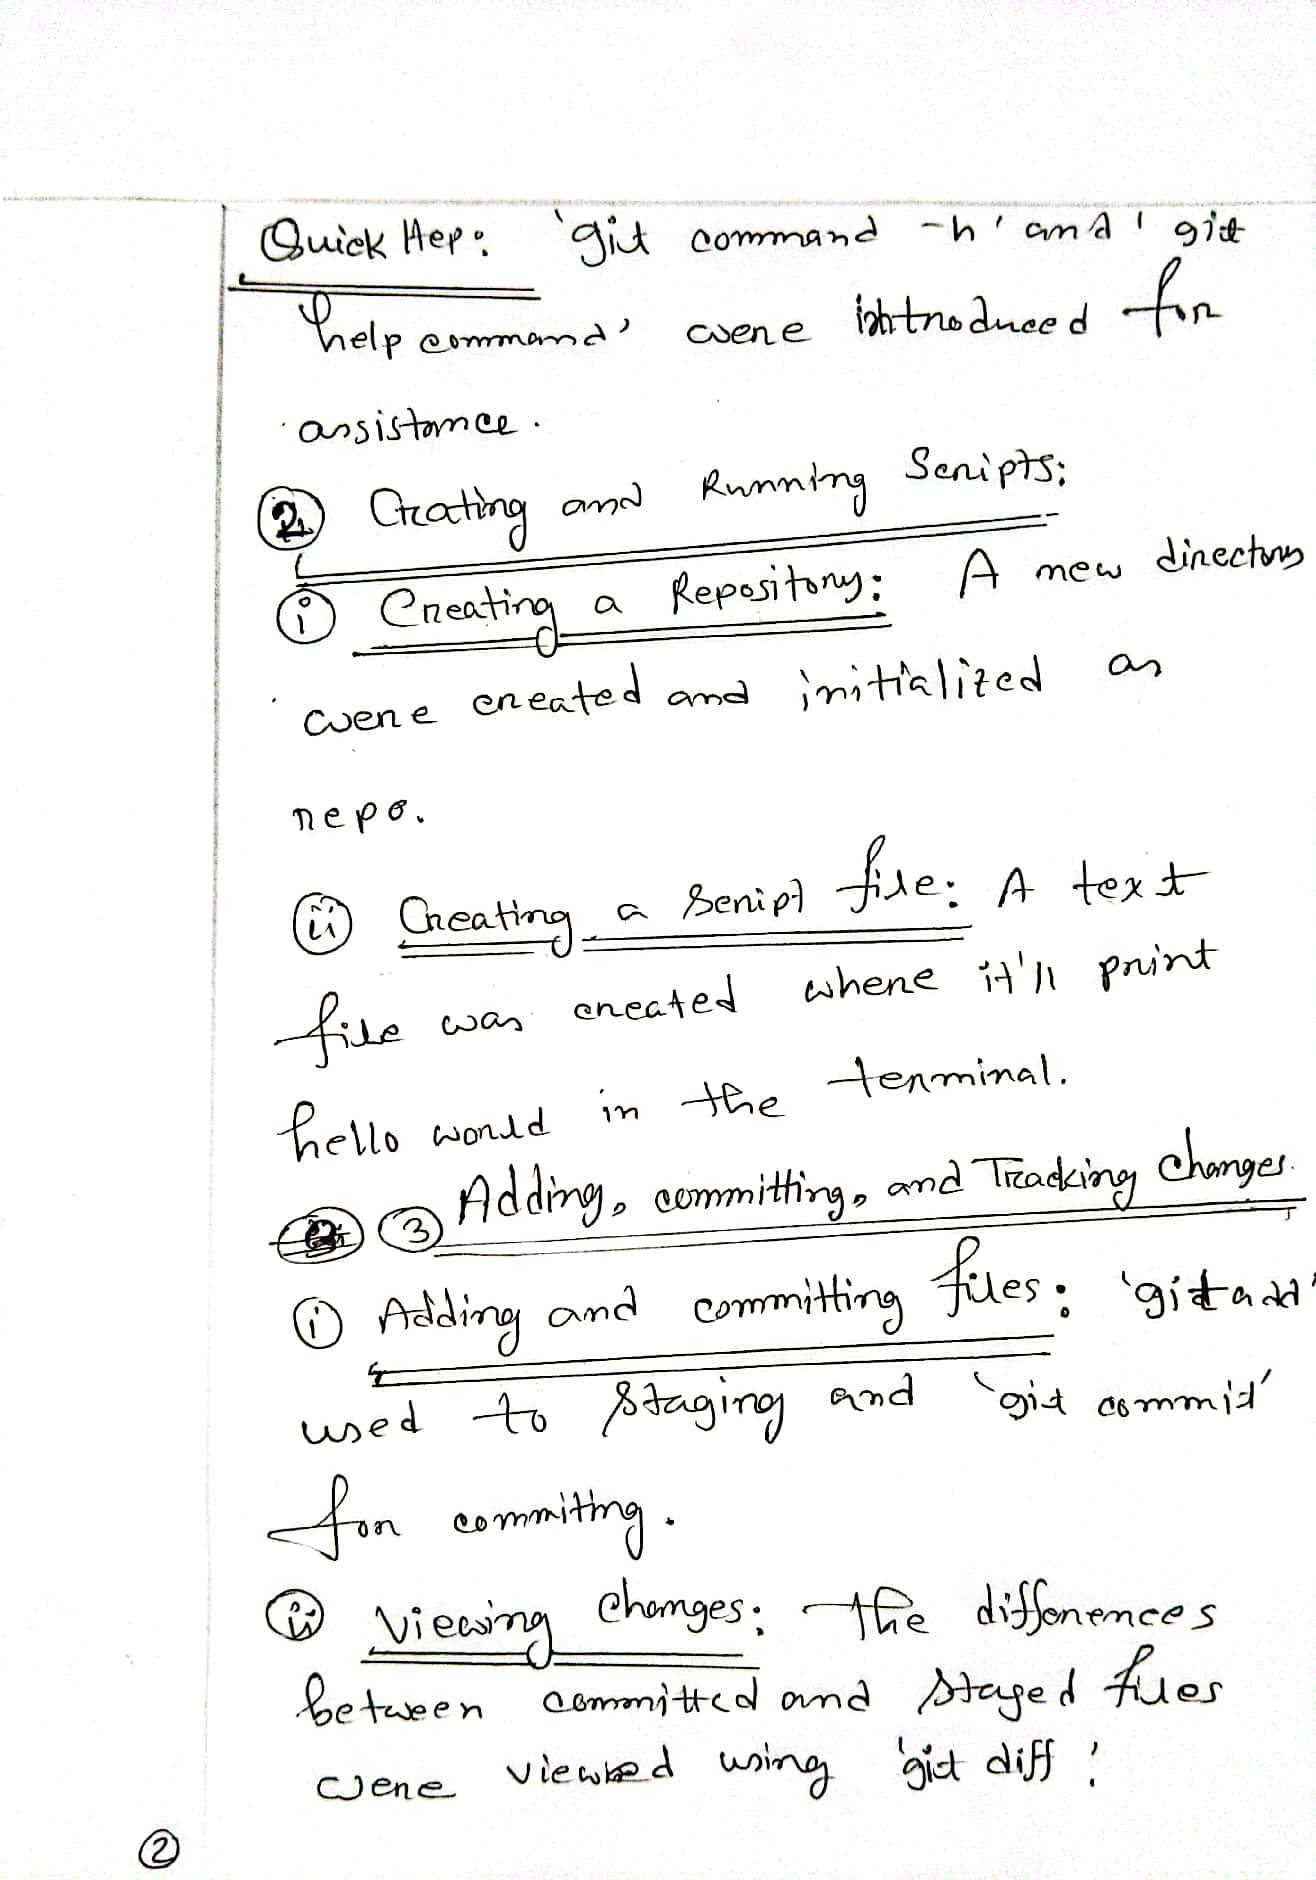 Quick Hep: 'git command -h' and 'git
help command' were introduced for
assistance.
2 Crating and Running Scripts:
i Creating a Repository: A new directory
were created and initialized as
repo.
ii Creating a Script file: A text
file was created where it'll print
hello world in the terminal.
3 Adding, committing, and Tracking Changes.
i Adding and committing files: 'git add'
used to staging and 'git commit'
for commiting.
ii Viewing Changes: The differences
between committed and staged files
were viewed using 'git diff'
2